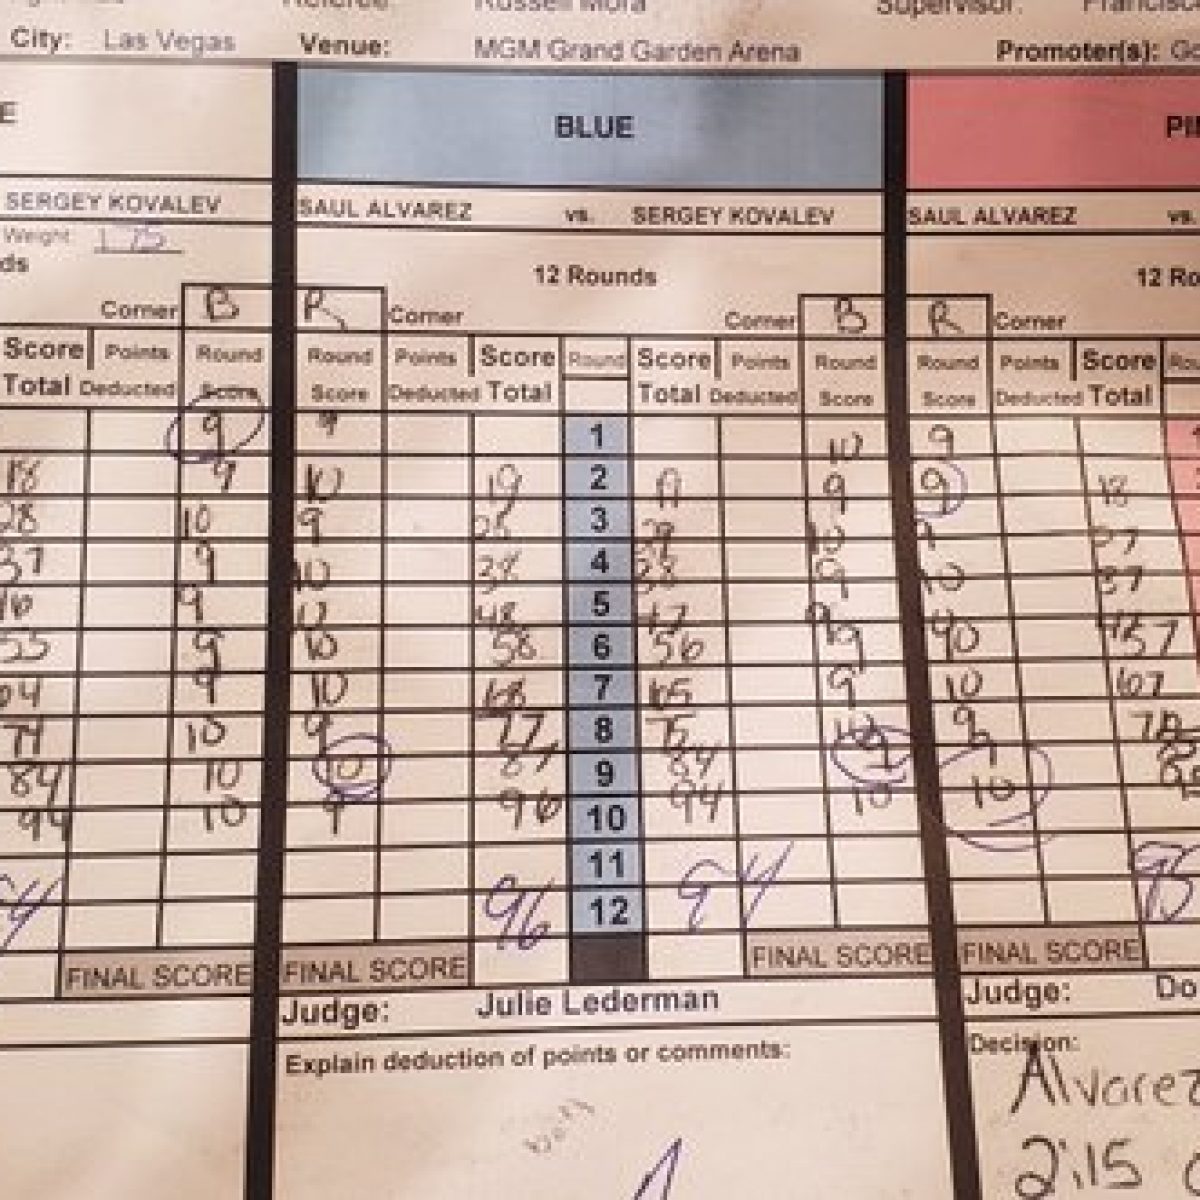 Russell Mora Supervisor:
City: Las Vegas Venue: MGM Grand Garden Arena Promoter(s):
BLUE
SERGEY KOVALEV SAUL ALVAREZ vs. SERGEY KOVALEV SAUL ALVAREZ vs.
Weight 175
12 Rounds
Corner B R Corner Corner B R Corner
Score Points Round Round Points Score Round Score Points Round Round Points Score
Total Deducted Score Score Deducted Total Total Deducted Score Score Deducted Total
9 9 1 10 9
18 9 10 19 2 9 9 18
28 10 9 28 3 29 10 9 27
37 9 10 38 4 38 9 10 37
9 10 48 5 47 9
55 9 10 58 6 56 9 10 57
64 9 10 68 7 65 9 10 67
74 10 9 77 8 75 10 9
84 10 10 87 9 84 9
94 10 9 96 10 94 10 10
11
96 12 94 95
FINAL SCORE FINAL SCORE FINAL SCORE FINAL SCORE
Judge: Julie Lederman Judge:
Explain deduction of points or comments: Decision:
Alvarez
2:15